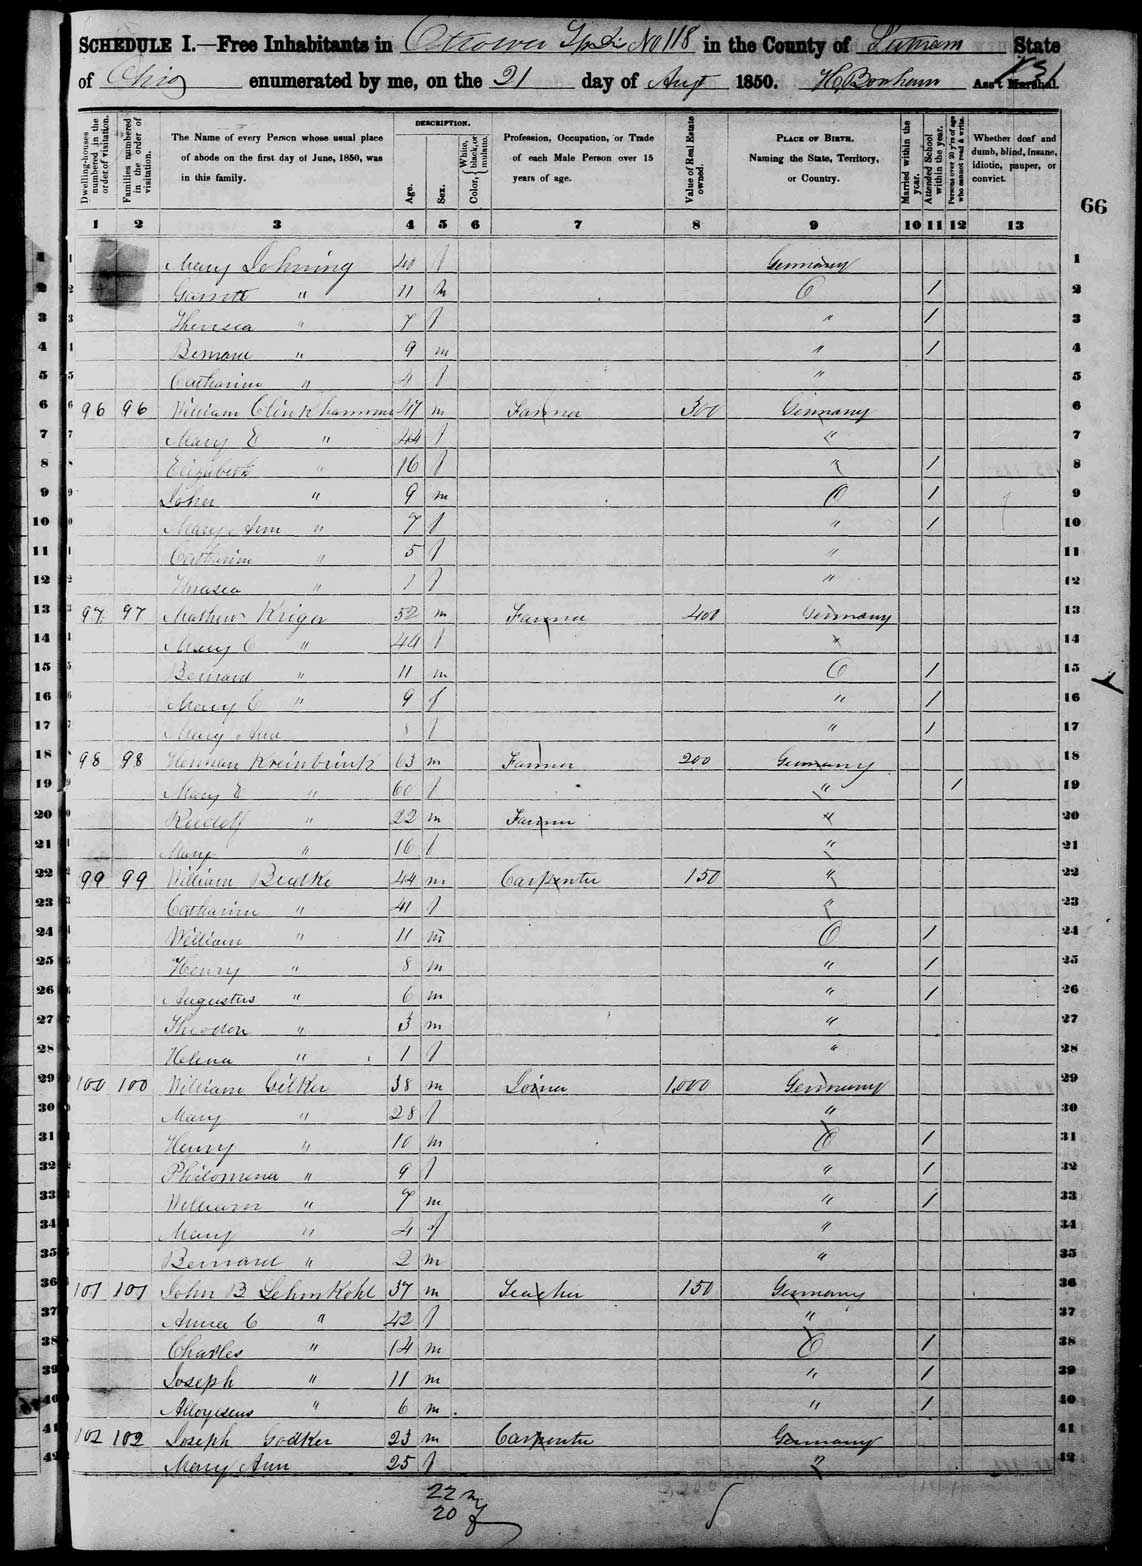 SCHEDULE I.—Free Inhabitants in Ottowa No 118 in the County of Putnam State
of Ohio enumerated by me, on the 21 day of Augt 1850. H. Bonham Ass't Marshal.
131
66
Dwelling-houses numbered in the order of visitation.
Families numbered in the order of visitation.
The Name of every Person whose usual place of abode on the first day of June, 1850, was in this family.
DESCRIPTION.
Age.
Sex.
Color, { White, black, or mulatto.
Profession, Occupation, or Trade of each Male Person over 15 years of age.
Value of Real Estate owned.
PLACE OF BIRTH. Naming the State, Territory, or Country.
Married within the year.
Attended School within the year.
Persons over 20 y'rs of age who cannot read & write.
Whether deaf and dumb, blind, insane, idiotic, pauper, or convict.
1 2 3 4 5 6 7 8 9 10 11 12 13
1 Mary 40 f Germany 1
2 Garrett " 11 m O 1 2
3 " 7 f " 1 3
4 Bernard " 9 m " 1 4
5 Catharine " 4 f " 5
6 96 96 William 47 m Farmer 300 Germany 6
7 Mary E " 44 f " 7
8 Elizabeth " 16 f " 1 8
9 John " 9 m O 1 9
10 Mary Ann " 7 f " 1 10
11 Catharine " 5 f " 11
12 " 1 f " 12
13 97 97 Mathew Kriger 52 m Farmer 400 Germany 13
14 Mary C " 44 f " 14
15 Bernard " 11 m O 1 15
16 Mary C " 9 f " 1 16
17 Mary Ann f " 1 17
18 98 98 Herman Kreinbrink 63 m Farmer 200 Germany 18
19 Mary E " 60 f " 1 19
20 Rudolf " 22 m Farmer " 20
21 Mary " 16 f " 21
22 99 99 William 44 m Carpenter 150 " 22
23 Catharine " 41 f " 23
24 William " 11 m O 1 24
25 Henry " 8 m " 1 25
26 Augustus " 6 m " 1 26
27 Theodore " 3 m " 27
28 Helena " 1 f " 28
29 100 100 William 38 m Joiner 1,000 Germany 29
30 Mary " 28 f " 30
31 Henry " 10 m O 1 31
32 Philomena " 9 f " 1 32
33 William " 7 m " 1 33
34 Mary " 4 f " 34
35 Bernard " 2 m " 35
36 101 101 John B LehmKohl 37 m Teacher 150 Germany 36
37 Anna C " 42 f " 37
38 Charles " 14 m O 1 38
39 Joseph " 11 m " 1 39
40 " 6 m " 1 40
41 102 102 Joseph Godker 23 m Carpenter Germany 41
42 Mary Ann 25 f " 42
22 m
20 f